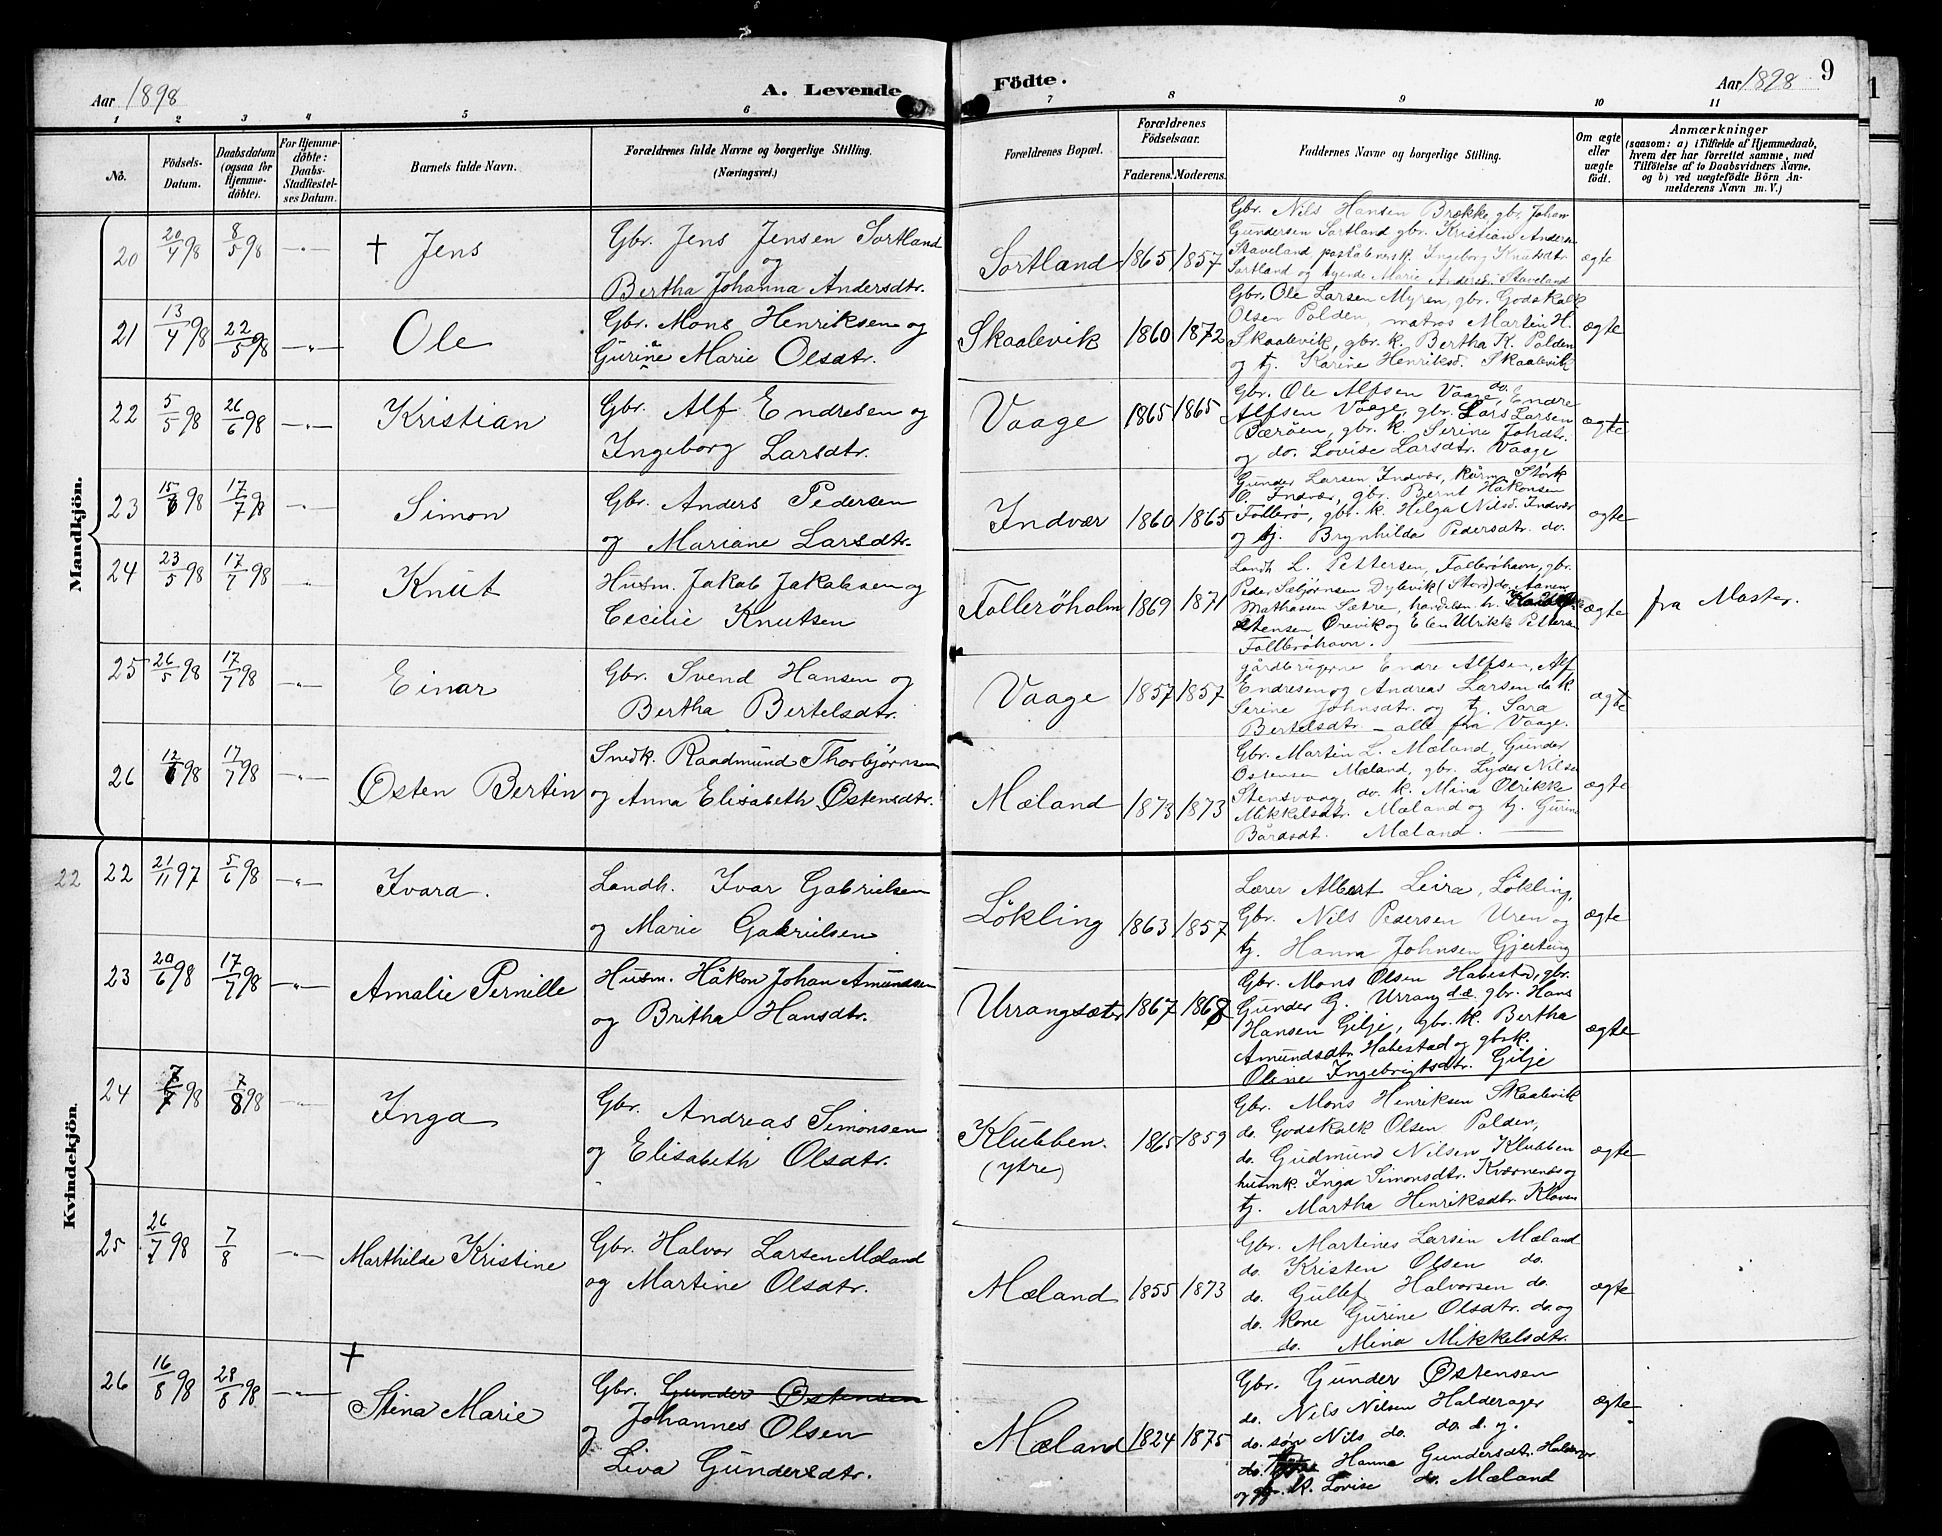 Aar 1898
A. Levende
Födte.
Aar 1898
9
1 2 3 4 5 6 7 8 9 10 11
No.
Födsels-Datum.
Daabsdatum (ogsaa for Hjemme-döbte).
For Hjemme-döbte: Daabs-Stadfæstel-ses Datum.
Barnets fulde Navn.
Forældrenes fulde Navne og borgerlige Stilling.
(Næringsvei.)
Forældrenes Bopæl.
Forældrenes Födselsaar.
Faderens. Moderens.
Faddernes Navne og borgerlige Stilling.
Om ægte eller uægte födt.
Anmærkninger
(saasom: a) i Tilfælde af Hjemmedaab,
hvem der har forrettet samme, med
Tilföielse af to Daabsvidners Navne,
og b) ved uægtefödte Börn An-
melderens Navn m. V.)
Mandkjön.
20 20/4 98 8/5 98 -"- † Jens
Gbr. Jens Jensen Sortland
og
Bertha Johanna Andersdtr.
Sortland 1865 1857
Gbr. Nils Hansen Brække, gbr. Johan
Gundersen Sortland gbr. Kristian Anders
Staveland poståbnersk. Ingeborg Knutsdtr.
Sortland og tyende Marie Andersd. Staveland
ægte
21 13/4 98 22/5 98 -"- Ole
Gbr. Mons Henriksen og
Gurine Marie Olsdtr.
Skaalevik 1860 1872
Gbr. Ole Larsen Myren, gbr. Godskalk
Olsen Polden, matros Martin H.
Skaalevik, gbr. k. Bertha K. Polden
og tj. Karine Henriksd. Skaalevik
ægte
22 5/5 98 26/6 98 -"- Kristian
Gbr. Alf Endresen og
Ingeborg Larsdtr.
Vaage 1865 1865
Gbr. Ole Alfsen Vaage, do. Endre
Alfsen Vaage, gbr. Lars Larsen
Bærøen, gbr. k. Serine Johdtr.
og do. Lovise Larsdtr. Vaage
ægte
23 15/6 98 17/7 98 -"- Simon
Gbr. Anders Pedersen
og Mariane Larsdtr.
Indvær 1860 1865
Gunder Larsen Indvær, Størk
O. Indvær, gbr. Bernt Håkonsen
Follerø, gbr. k. Helga Nilsd. Indvær
og tj. Brynhilda Pedersdtr. do.
ægte
24 23/5 98 17/7 98 -"- Knut
Husm. Jakob Jakobsen og
Cecilie Knutsen
Follerøholm 1869 1871
Landh. L. Pettersen, Follerøhavn, gbr.
Peder Sæbjørnsen Dybvik (Stord) do.
Mathassen Sætre, handelsm. h.
Stensen Orevik og Elen Ulrikk Pettersen
Follerøhavn.
ægte
fra Moster.
25 26/5 98 17/7 98 -"- Einar
Gbr. Svend Hansen og
Bertha Bertelsdtr.
Vaage 1857 1857
gårdbrugerne Endre Alfsen, Alf
Endresen og Andreas Larsen do k.
Serine Johnsdtr. og tj. Sara
Bertelsdtr. – alle fra Vaage.
ægte
26 12/6 98 17/7 98 -"- Østen Bertin
Snedk. Raadmund Thorbjørnsen
og Anna Elisabeth Østensdtr.
Mæland 1873 1873
Gbr. Martin L. Mæland, Gunder
Østensen Mæland, gbr. Lyder Nilsen
Stensvaag, do. k. Mina Olrikke
Mikkelsdtr. Mæland og tj. Gurine
Bårdsdt. Mæland.
ægte
Kvindekjön.
22 22 21/11 97 5/6 98 -"- Ivara.
Landh. Ivar Gabrielsen
og Marie Gabrielsen
Løkling 1863 1857
Lærer Albert Leira, Løkling,
Gbr. Nils Pedersen Uren og
tj. Hanna Johnsen Gjerting
ægte
23 20/6 98 17/7 98 -"- Amalie Pernille
Husm. Håkon Johan Amundsen
og Britha Hansdtr.
Urrangsæter 1867 1868
Gbr. Mons Olsen Habestad, gbr.
Gunder G. Urrang d.æ. gbr. Hans
Hansen Gilje, gbr. k. Bertha
Amundsdtr. Habestad og gbrk.
Oline Ingebrigtsdtr. Gilje
ægte
24 7/7 98 7/8 98 -"- Inga
Gbr. Andreas Simonsen
og Elisabeth Olsdtr.
Klubben.
(ytre) 1865 1859
Gbr. Mons Henriksen Skaalevik
do. Godskalk Olsen Polden,
do. Gudmund Nilsen Klubben
husmk. Inga Simonsdtr. Kværnenæs og
tj. Martha Henriksdtr. Kloven
ægte
25 26/7 98 7/8 -"- Marthilde Kristine
Gbr. Halvor Larsen Mæland
og Martine Olsdtr.
Mæland 1855 1873
Gbr. Martines Larsen Mæland
do. Kristen Olsen do.
do. Gullef Halvorsen do.
do. kone Gurine Olsdtr. do. og
do. Mina Mikkelsdtr.
ægte
26 16/8 98 28/8 98 -"- † Stina Marie
Gbr. Gunder Østensen
og Johannes Olsen
Liva Gundersdtr.
Mæland 1824 1875
Gbr. Gunder Østensen
do. Nils Nilsen Halderager
do. søn Nils do. do. d. y.
do. Hanna Gundersdtr. Halderager
og gbr. k. Lovise do. Mæland
ægte